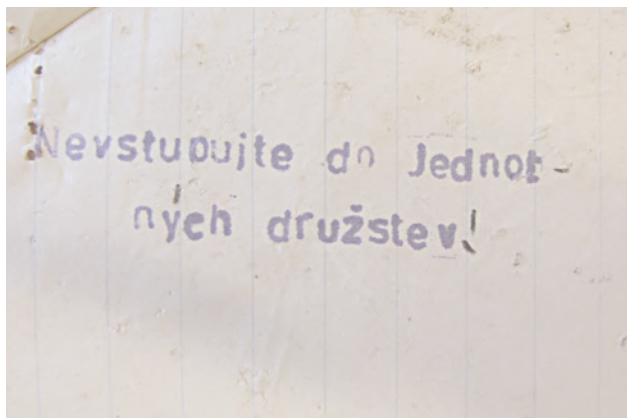 Nevstupujte do Jednot-
ných družstev!